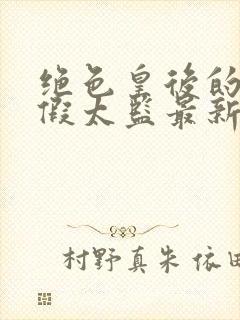 绝色皇後的
假太监最新
村野真朱 依田